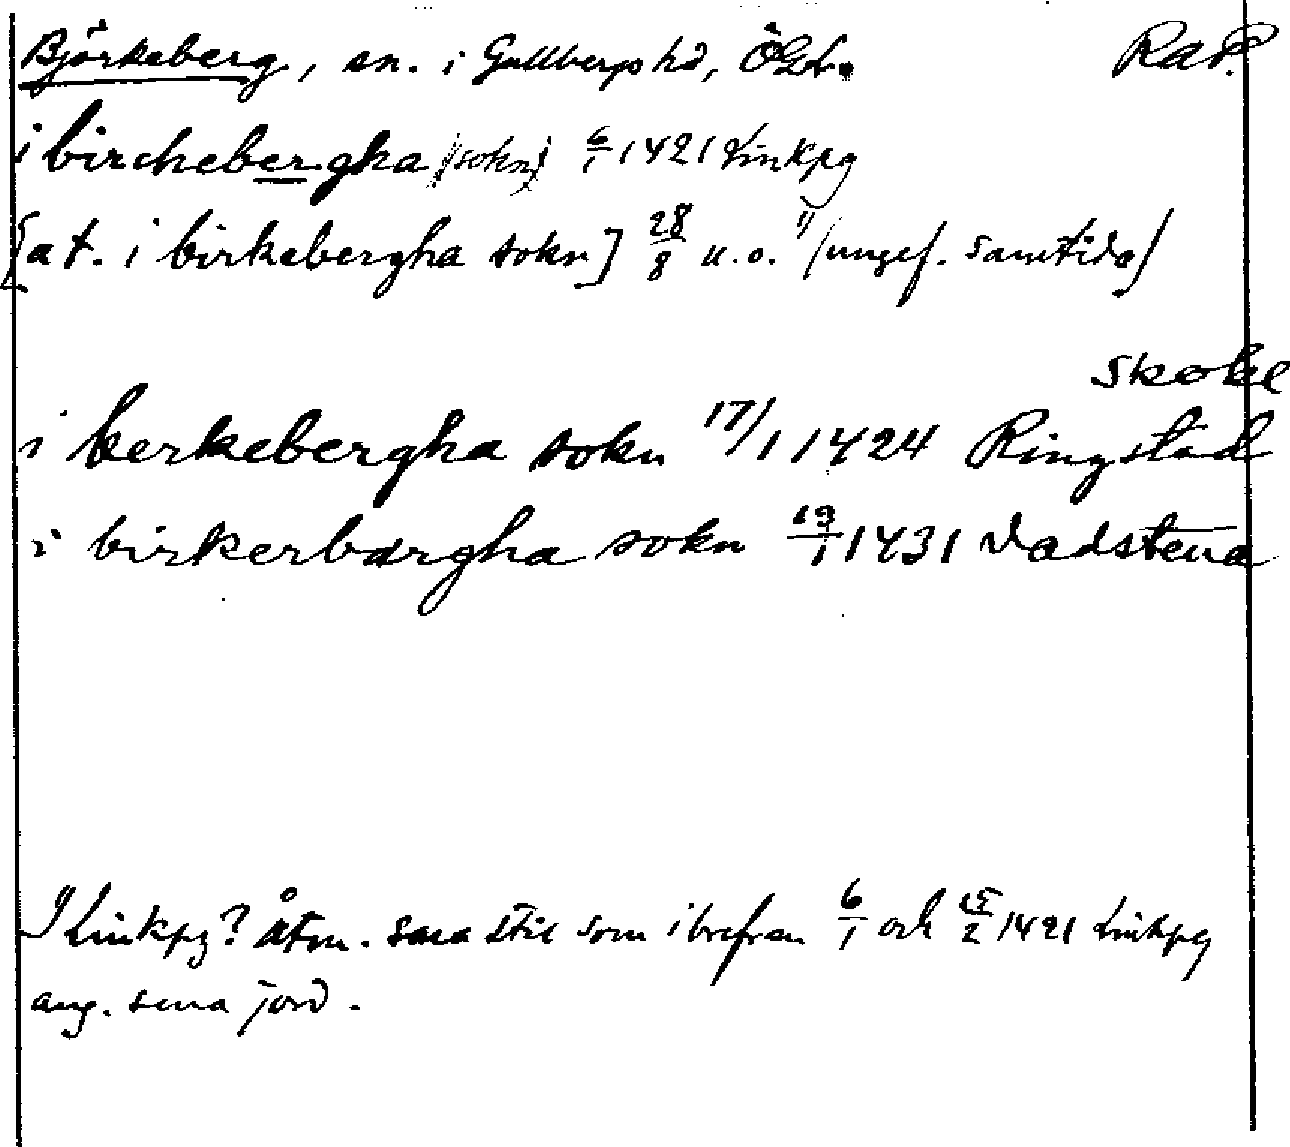 Björkeberg, sn. i Gullbergs hd, ÖGtl. RaP.
i birchebergha (sokn) 6/1 1421 Linkpg
[at. i birkebergha sokn] 28/8 u.o. 1) (ungef. samtida)
Skoke
i berkebergha sokn 17/1 1424 Ringstad
i birkerbargha sokn 19/1 1431 Vadstena
I Linkpg? Åtm. sma stil som i brefven 6/1 och 15/2 1421 Linkpg
ang. sma jord.